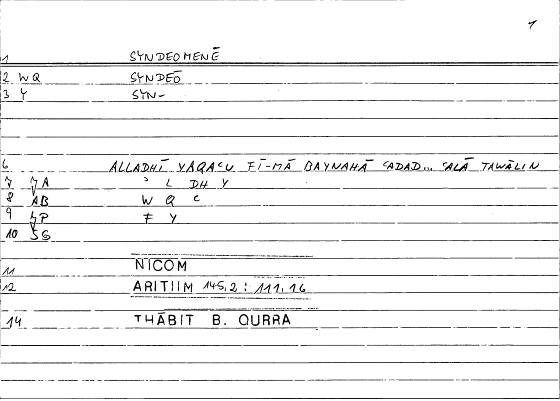 1
1 SYNDEOMENĒ
2 WQ SYNDEŌ
3 Y SYN-
6 ALLADHĪ YAQAʿU FĪ-MĀ BAYNAHĀ ʿADAD... ʿALĀ TAWĀLIN
7 JA ʾ L DH Y
8 AB W Q ʿ
9 JP F Y
10 SS
11 NICOM
12 ARITIIM 145,2 : 111,16
14 THĀBIT B. QURRA